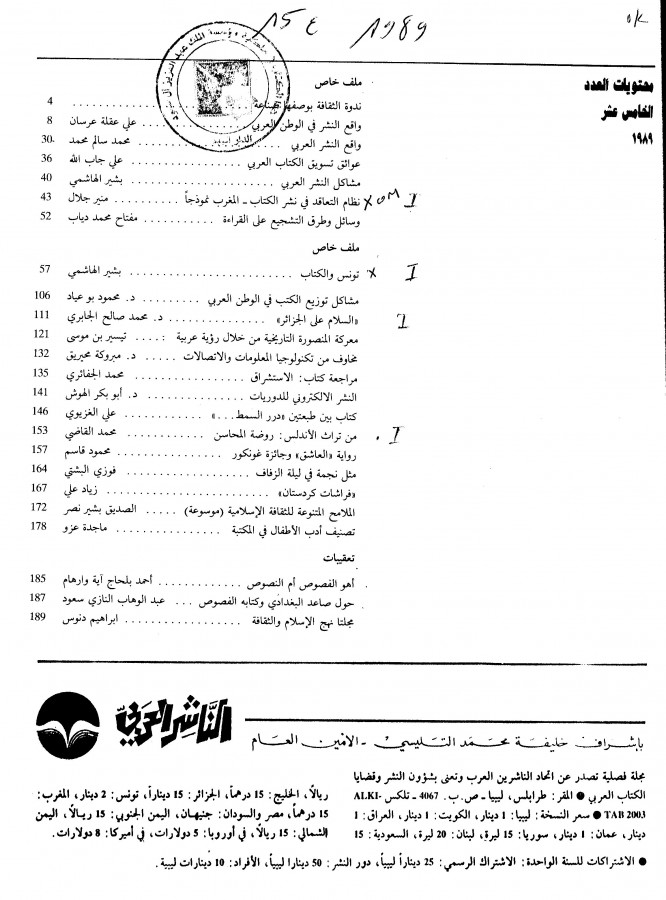 ع 15 1989
محتويات العدد
الخامس عشر
١٩٨٩
ملف خاص
ندوة الثقافة بوصفها صناعة 4
واقع النشر في الوطن العربي علي عقلة عرسان 8
واقع النشر العربي محمد سالم محمد 30
عوائق تسويق الكتاب العربي علي جاب الله 36
مشاكل النشر العربي بشير الهاشمي 40
نظام التعاقد في نشر الكتاب ـ المغرب نموذجاً منير جلال 43
وسائل وطرق التشجيع على القراءة مفتاح محمد دياب 52
ملف خاص
تونس والكتاب بشير الهاشمي 57
مشاكل توزيع الكتب في الوطن العربي د. محمود بو عياد 106
«السلام على الجزائر» د. محمد صالح الجابري 111
معركة المنصورة التاريخية من خلال رؤية عربية تيسير بن موسى 121
مخاوف من تكنولوجيا المعلومات والاتصالات د. مبروكة محيريق 132
مراجعة كتاب: الاستشراق محمد الجفائري 135
النشر الالكتروني للدوريات د. أبو بكر الهوش 141
كتاب بين طبعتين «درر السمط...» علي الغزيوي 146
من تراث الأندلس: روضة المحاسن محمد القاضي 153
رواية «العاشق» وجائزة غونكور محمود قاسم 157
مثل نجمة في ليلة الزفاف فوزي البشتي 164
«فراشات كردستان» زياد علي 167
الملامح المتنوعة للثقافة الإسلامية (موسوعة) الصديق بشير نصر 172
تصنيف أدب الأطفال في المكتبة ماجدة عزو 178
تعقيبات
أهو الفصوص أم النصوص أحمد بلحاج آية وارهام 185
حول صاعد البغدادي وكتابه الفصوص ... عبد الوهاب التازي سعود 187
مجلتا نهج الإسلام والثقافة ابراهيم دنوس 189
الناشر العربي
بإشراف خليفة محمد التليسي - الأمين العام
مجلة فصلية تصدر عن اتحاد الناشرين العرب وتعنى بشؤون النشر وقضايا
الكتاب العربي ● المقر: طرابلس، ليبيا ـ ص.ب. 4067 ـ تلكس ALKI-
TAB 2003 ● سعر النسخة: ليبيا: 1 دينار، الكويت: 1 دينار، العراق: 1
دينار، عمان: 1 دينار، سوريا: 15 ليرة، لبنان: 20 ليرة، السعودية: 15
ريالاً، الخليج: 15 درهماً، الجزائر: 15 ديناراً، تونس: 2 دينار، المغرب:
15 درهماً، مصر والسودان: جنيهان، اليمن الجنوبي: 15 ريالاً، اليمن
الشمالي: 15 ريالاً، في أوروبا: 5 دولارات، في أميركا: 8 دولارات.
● الاشتراكات للسنة الواحدة: الاشتراك الرسمي: 25 ديناراً ليبياً، دور النشر: 50 دينارا ليبياً، الأفراد: 10 دينارات ليبية.